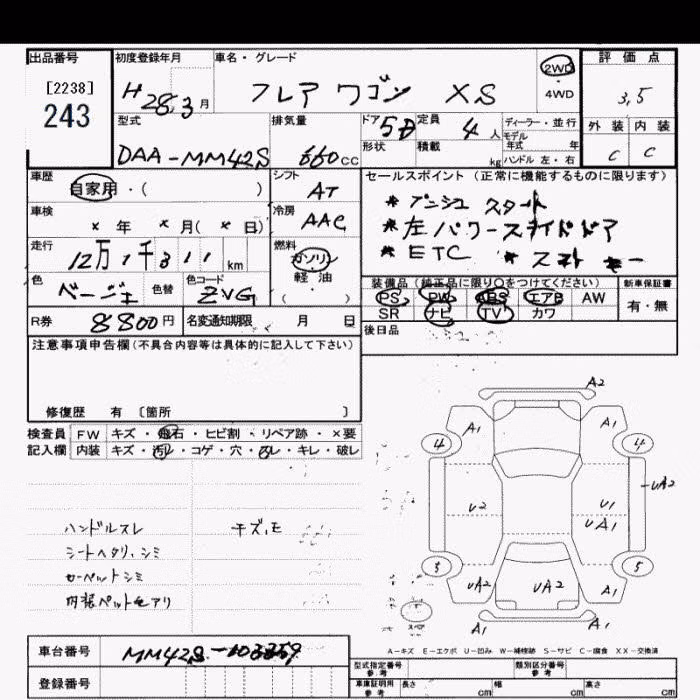 出品番号 初度登録年月 車名・グレード 評価点
[2238]
243
H 28.3月 フレア ワゴン XS 2WD・4WD 3.5
外装 内装
C C
型式 排気量 ドア 5D 定員 4人 ディーラー・並行
形状 積載 kg モデル年式 年
ハンドル 左・右
DAA-MM42S 660 CC
車歴 シフト セールスポイント (正常に機能するものに限ります)
自家用・( ) AT
* プッシュ スタート
車検 冷房
× 年 × 月( × 日) AAC
* 左パワースライドドア
走行 燃料
12万1千311 km ガソリン
軽油
( )
* ETC * スマートキー
色 色替 色コード
ベージュ ZVG
装備品 (純正品に限り○をつけてください) 新車保証書
PS PW ABS エアB AW 有・無
SR ナビ TV カワ
R券 8800円 名変通知期限 月 日
後日品
注意事項申告欄 (不具合内容等は具体的に記入して下さい)
修復歴 有 〔箇所 〕
検査員 FW キズ・飛石・ヒビ割・リペア跡・×要
記入欄 内装 キズ・汚レ・コゲ・穴・スレ・キレ・破レ
ハンドルスレ キズ,モ
シートヘタリ,シミ
カーペットシミ
内張ペットモアリ
A2
A1 A1
4 4
UA2
U2 U1
UA1
3 5
UA2 UA2 A1
A1 A1
A-キズ E-エクボ U-凹み W-補修跡 S-サビ C-腐食 XX-交換済
車台番号
登録番号
型式指定番号 参考 類別区分番号 参考
車庫証明用 参考 長さ cm 幅 cm 高さ cm